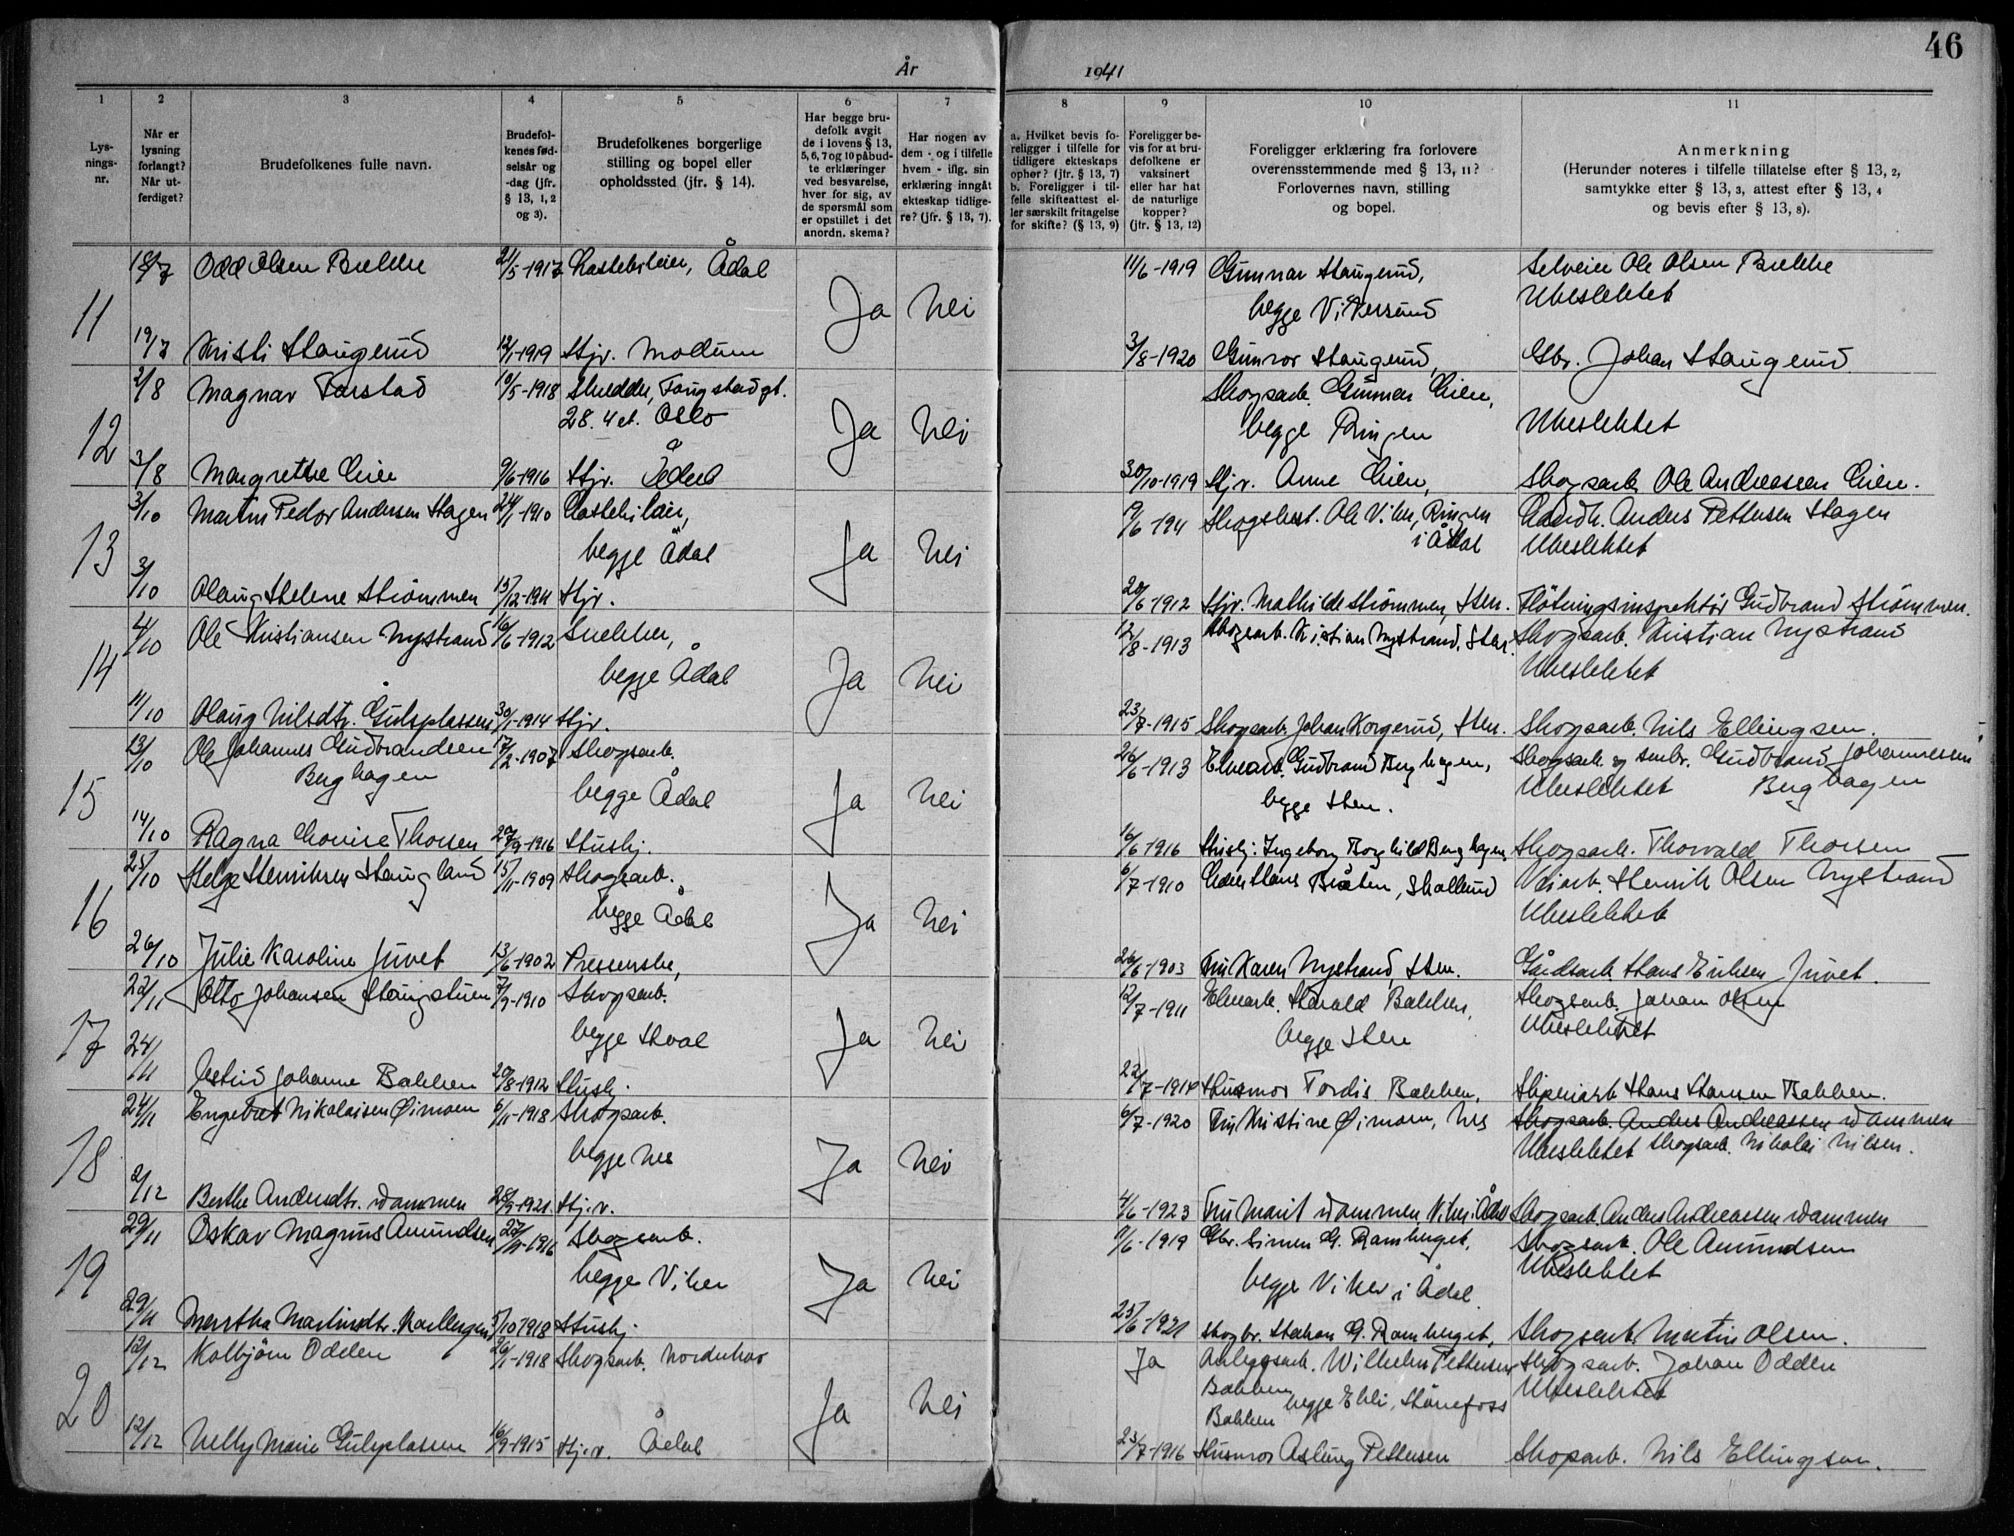 46
År 1941
1 2 3 4 5 6 7 8 9 10 11
Lys-
nings-
nr.
Når er
lysning
forlangt?
Når ut-
ferdiget?
Brudefolkenes fulle navn.
Brudefol-
kenes fød-
selsår og
-dag (jfr.
§ 13, 1, 2
og 3).
Brudefolkenes borgerlige
stilling og bopel eller
opholdssted (jfr. § 14).
Har begge bru-
defolk avgit
de i lovens § 13,
5, 6, 7 og 10 påbud-
te erklæringer
ved besvarelse,
hver for sig, av
de spørsmål som
er opstillet i det
anordn. skema?
Har nogen av
dem - og i tilfelle
hvem - iflg. sin
erklæring inngåt
ekteskap tidlige-
re? (jfr. § 13, 7).
a. Hvilket bevis fo-
religger i tilfelle for
tidligere ekteskaps
ophør? (jfr. § 13, 7)
b. Foreligger i til-
felle skifteattest el-
ler særskilt fritagelse
for skifte? (§ 13, 9)
Foreligger be-
vis for at bru-
defolkene er
vaksinert
eller har hat
de naturlige
kopper?
(jfr. § 13, 12)
Foreligger erklæring fra forlovere
overensstemmende med § 13, 11?
Forlovernes navn, stilling
og bopel.
Anmerkning
(Herunder noteres i tilfelle tillatelse efter § 13, 2,
samtykke efter § 13, 3, attest efter § 13, 4
og bevis efter § 13, 8).
18/7 Odd Olsen Bekke 21/5-1917 Lastebileier, Ådal 11/6-1919 Gunnar Haugerud, Selveier Ole Olsen Bekke
11 Ja Nei begge Vikersund Ubeslektet
19/7 Kristi Haugerud 12/1-1919 Hjv. Modum 3/8-1920 Gunvor Haugerud, Gbr. Johan Haugerud.
2/8 Magnar Forstad 10/5-1918 Skredder, Fougstadgt. Skogsarb. Gunnar Eien,
12 28. 4 et. Oslo Ja Nei begge Ringen Ubeslektet
3/8 Margrethe Eien 9/6-1916 Hjv. Ådal 30/10-1919 Hjv. Anne Eien, Skogsarb. Ole Andreassen Eien.
3/10 Martin Pedor Andersen Hagen 24/1-1910 Lastebileier, 19/6-194 Skogsbest. Ole Viker, Ringen Landh. Anders Pettersen Hagen
13 begge Ådal Ja Nei i Ådal Ubeslektet
3/10 Olaug Helene Strømmen 15/12-1911 Hjv. 20/6-1912 Hjv. Mathilde Strømmen, Hen. Fløtningsinspektør Gudbrand Strømmen.
4/10 Ole Kristiansen Nystrand 16/6-1912 Snekker, 12/8-1913 Skogsarb. Kristian Nystrand, Hen. Skogsarb. Kristian Nystrand
14 begge Ådal Ja Nei Ubeslektet
11/10 Olaug Nilsdtr. Gulsplassen 30/1-1914 Hjv. 23/7-1915 Skogsarb. Johan Korgerud, Hen. Skogsarb. Nils Ellingsen.
13/10 Ole Johannes Gudbrandsen 17/2-1907 Skogsarb. 26/6-1913 Elvearb. Gudbrand Berghagen, Skogsarb. og småbr. Gudbrand Johannessen
15 Berghagen begge Ådal Ja Nei begge Hen. Ubeslektet Berghagen
14/10 Ragna Lovise Thorsen 20/9-1916 Hushj. 16/6-1916 Hushj. Ingeborg Borghild Berghagen Skogsarb. Thorvald Thorsen
25/10 Helge Henriksen Haugland 15/11-1909 Skogsarb. 6/7-1910 Hans Bråten, Skollerud Veiarb. Henrik Olsen Nystrand
16 begge Ådal Ja Nei Ubeslektet
26/10 Julie Karoline Juvet 13/6-1902 Presserske, 26/6-1903 Fru Karen Nystrand, Hen. Gårdsarb. Hans Eriksen Juvet.
22/11 Otto Johansen Haugstuen 7/9-1910 Skogsarb. 12/7-1911 Elvearb. Harald Bakken, Skogsarb. Johan Olsen
17 begge Hval Ja Nei begge Hen Ubeslektet
24/11 Astrid Johanne Bakken 20/8-1912 Hushj. 22/7-1914 Husmor Tordis Bakken, Sliperiarb. Hans Hansen Bakken.
24/11 Engebret Nikolaisen Øimoen 6/11-1918 Skogsarb. 6/7-1920 Fru Kristine Øimoen, Nes Skogsarb. Anders Andreassen Dammen
18 begge Nes Ja Nei Ubeslektet Skogsarb. Nikolai Nilsen.
2/12 Berthe Andersdtr. Dammen 28/9-1921. Hj.v. 4/6-1923 Fru Marit Dammen, Viker i Ådal Skogsarb. Anders Andreassen Dammen
29/11 Oskar Magnus Amundsen 27/11-1916 Skogsarb. 11/6-1919 Gbr. Simen G. Ramberget, Skogsarb. Ole Amundsen
19 begge Viker Ja Nei begge Viker i Ådal. Ubeslektet
29/11 Martha Martinsdtr. 5/10 1918 Hushj. 25/6-1921 Skogbr. Haakon G. Ramberget, Skogsarb. Martin Olsen.
12/12 Kolbjørn Odden 26/1-1918 Skogsarb. Norderhov Ja Anleggsarb. Wilhelm Pettersen Skogsarb. Johan Odden
20 Ja Nei Bakken begge Ekli, Hønefoss Ubeslektet
Bakken
12/12 Nelly Marie Gulsplassen 16/9-1915 Hj.v. Ådal 23/7-1916 Husmor Aslaug Pettersen Skogsarb. Nils Ellingsen.